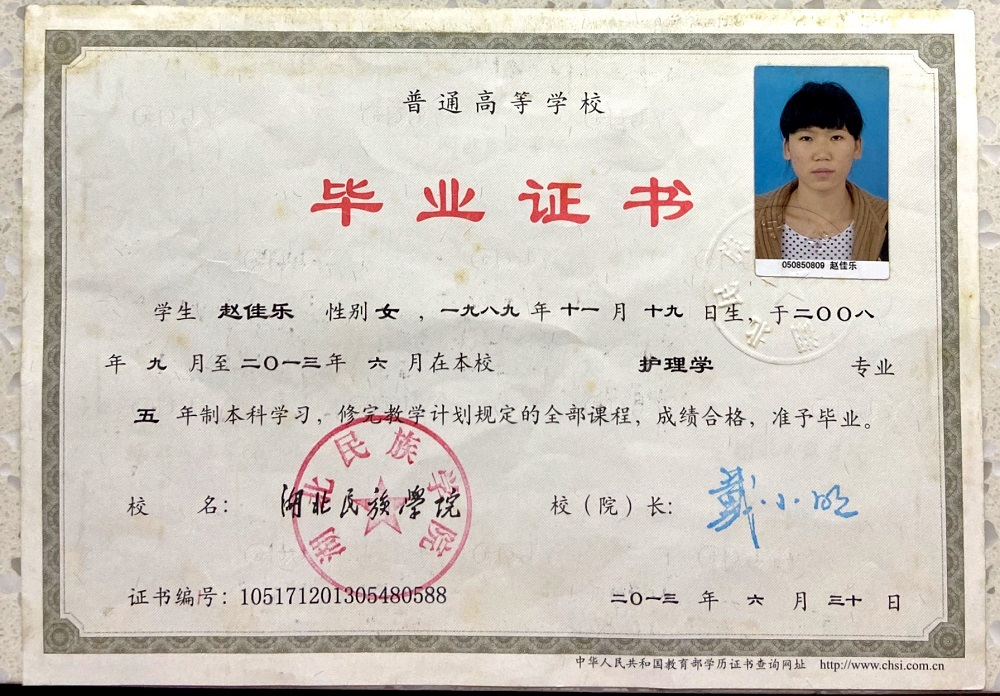 普通高等学校
毕业证书
050850809 赵佳乐
学生 赵佳乐 性别 女 ，一九八九 年 十一 月 十九 日生，于二〇〇八
年 九 月至 二〇一三 年 六 月在本校 护理学 专业
五 年制本科学习，修完教学计划规定的全部课程，成绩合格，准予毕业。
校 名： 湖北民族學院
湖北民族学院
校（院）长： 戴小明
证书编号：105171201305480588
二〇一三 年 六 月 三十 日
中华人民共和国教育部学历证书查询网址 http://www.chsi.com.cn